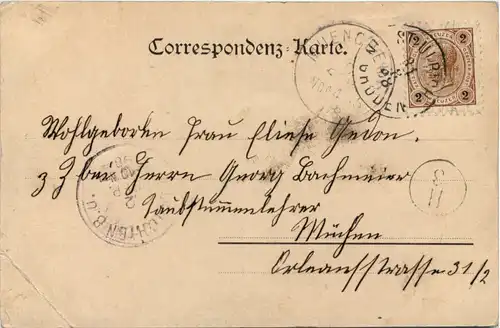 Correspondenz-Karte.
2 2
Wohlgeborn Frau Eliese Gedon.
z Z bei Herrn Georg Bachmeier
Taubstummenlehrer
Müchen
Orleansstrasse 31/2
11
3